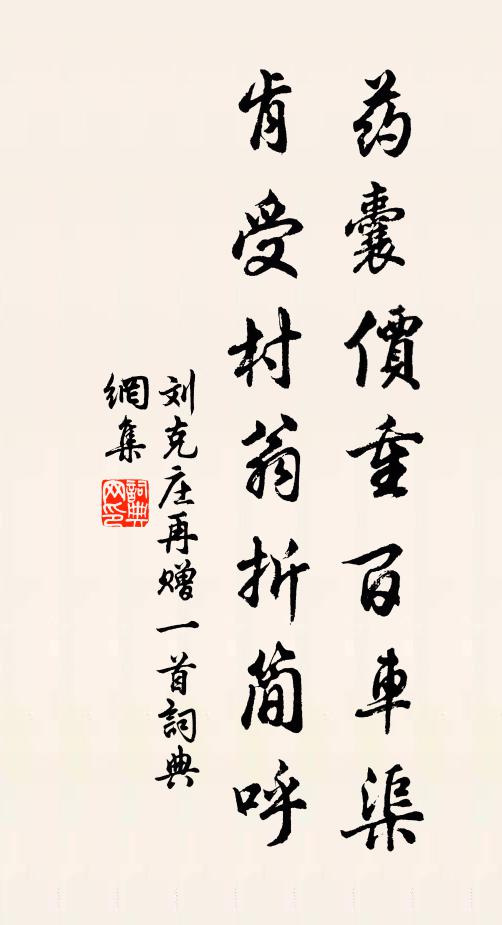 药囊價重百車渠
肯受村翁折简呼
刘克庄再赠一首詞典
網集
詞典網印